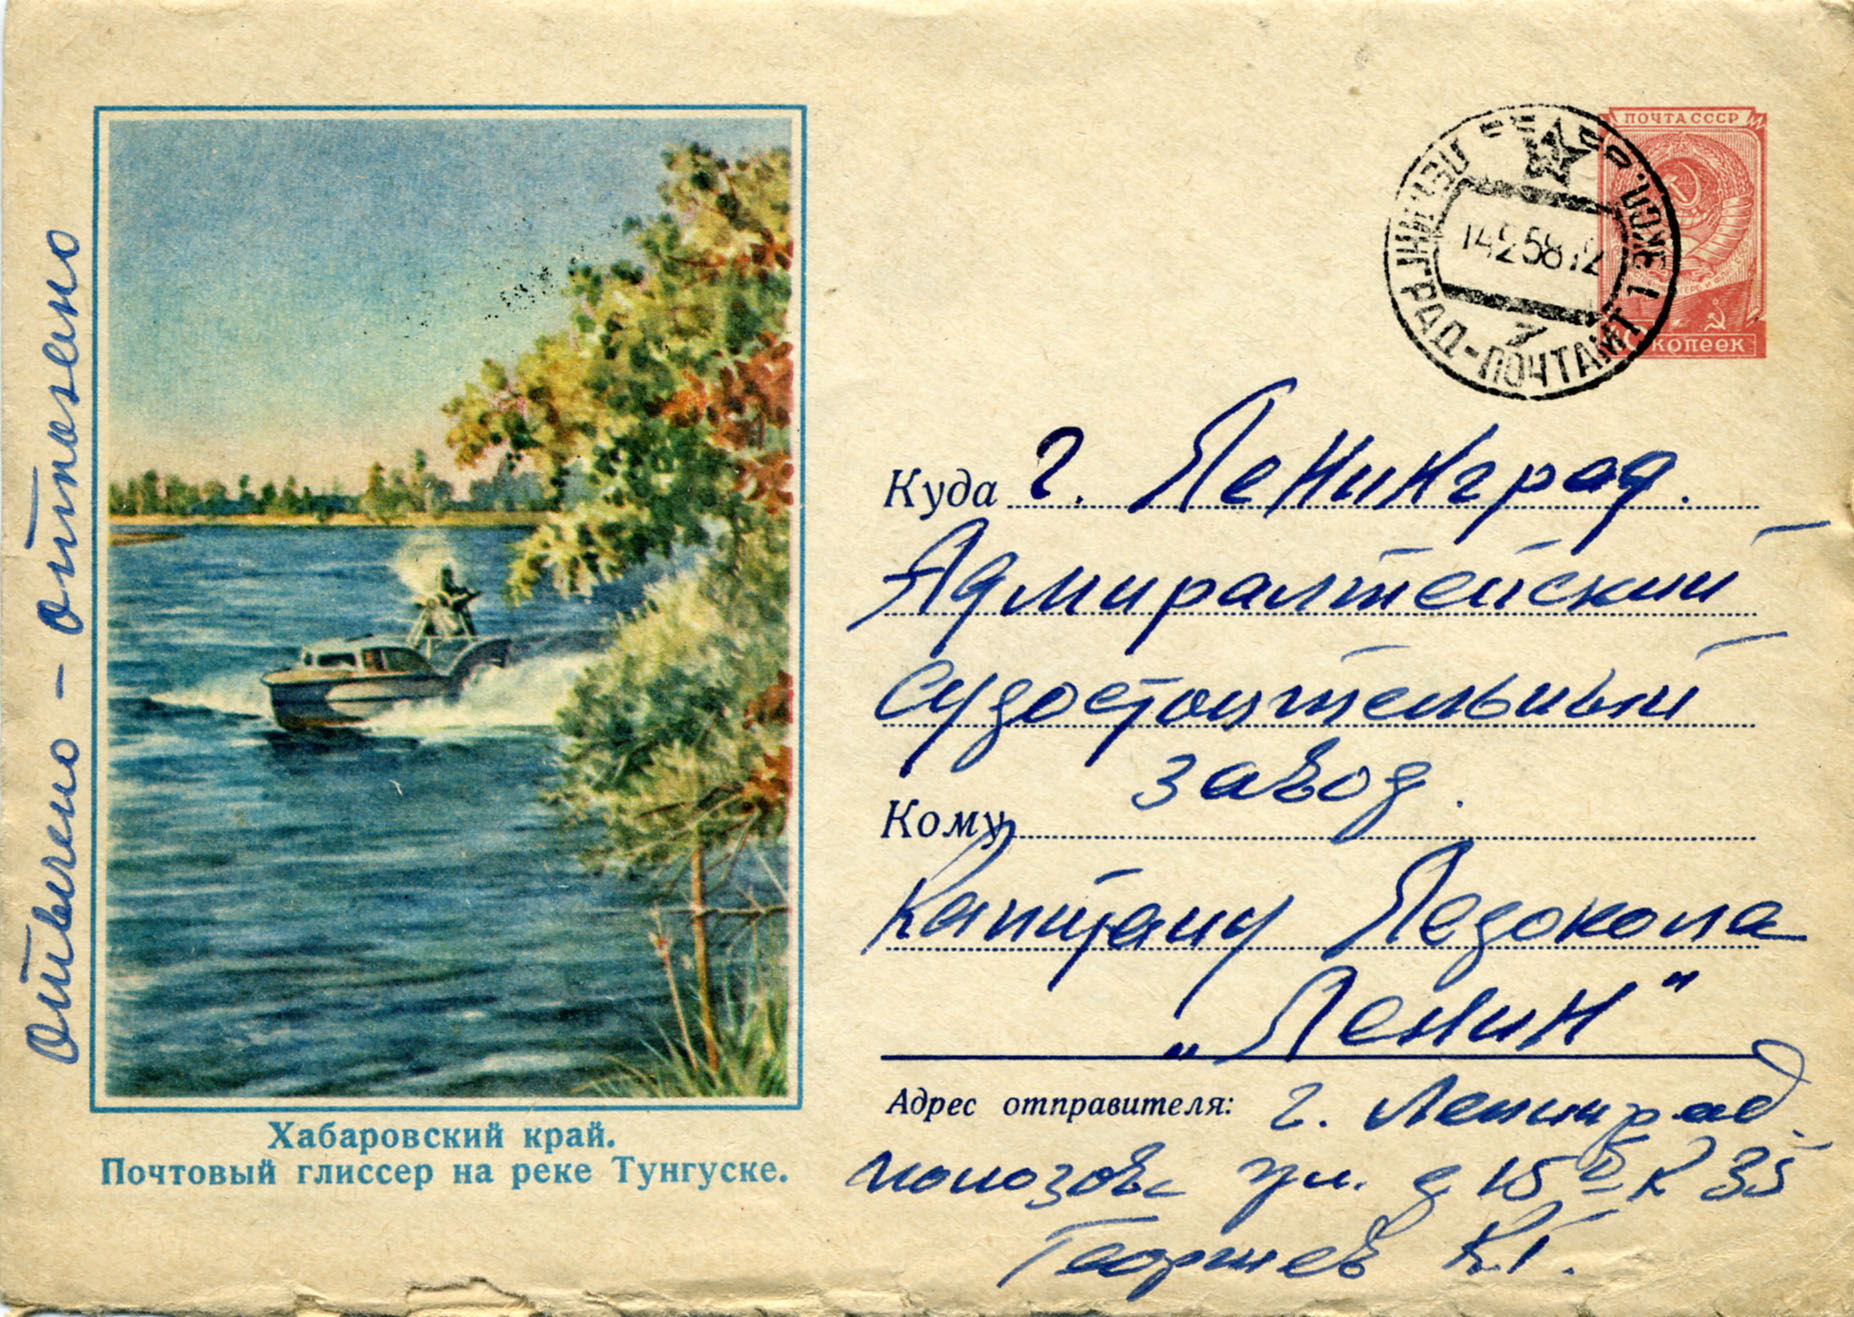 отвечено – отказано
Хабаровский край.
Почтовый глиссер на реке Тунгуске.
ПОЧТА СССР
КОПЕЕК
ЛЕНИНГРАД-ПОЧТАМТ
14 2 58 12
7
Куда г. Ленинград.
Адмиралтейский
судостоительный
завод.
Кому
Капитану Ледокола
„Ленин"
Адрес отправителя: г. Ленинград.
ул. д 15 К 35
Георгиев К.Г.